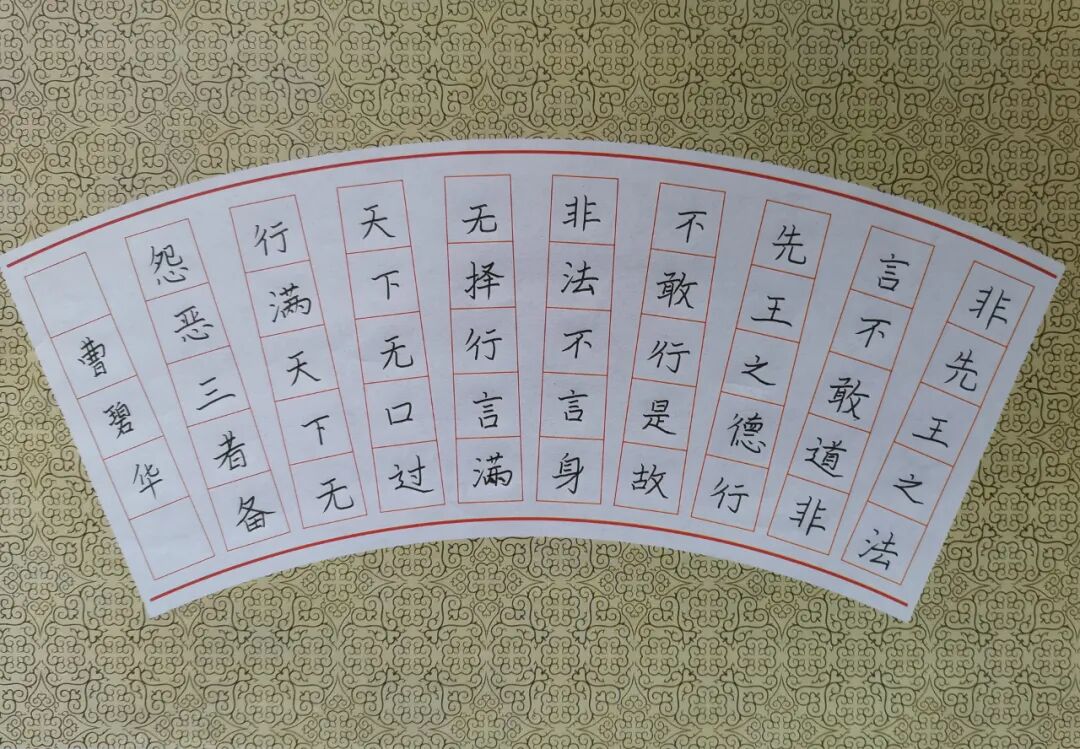 非先王之法
言不敢道非
先王之德行
不敢行是故
非法不言身
无择行言满
天下无口过
行满天下无
怨恶三者备
曹碧华